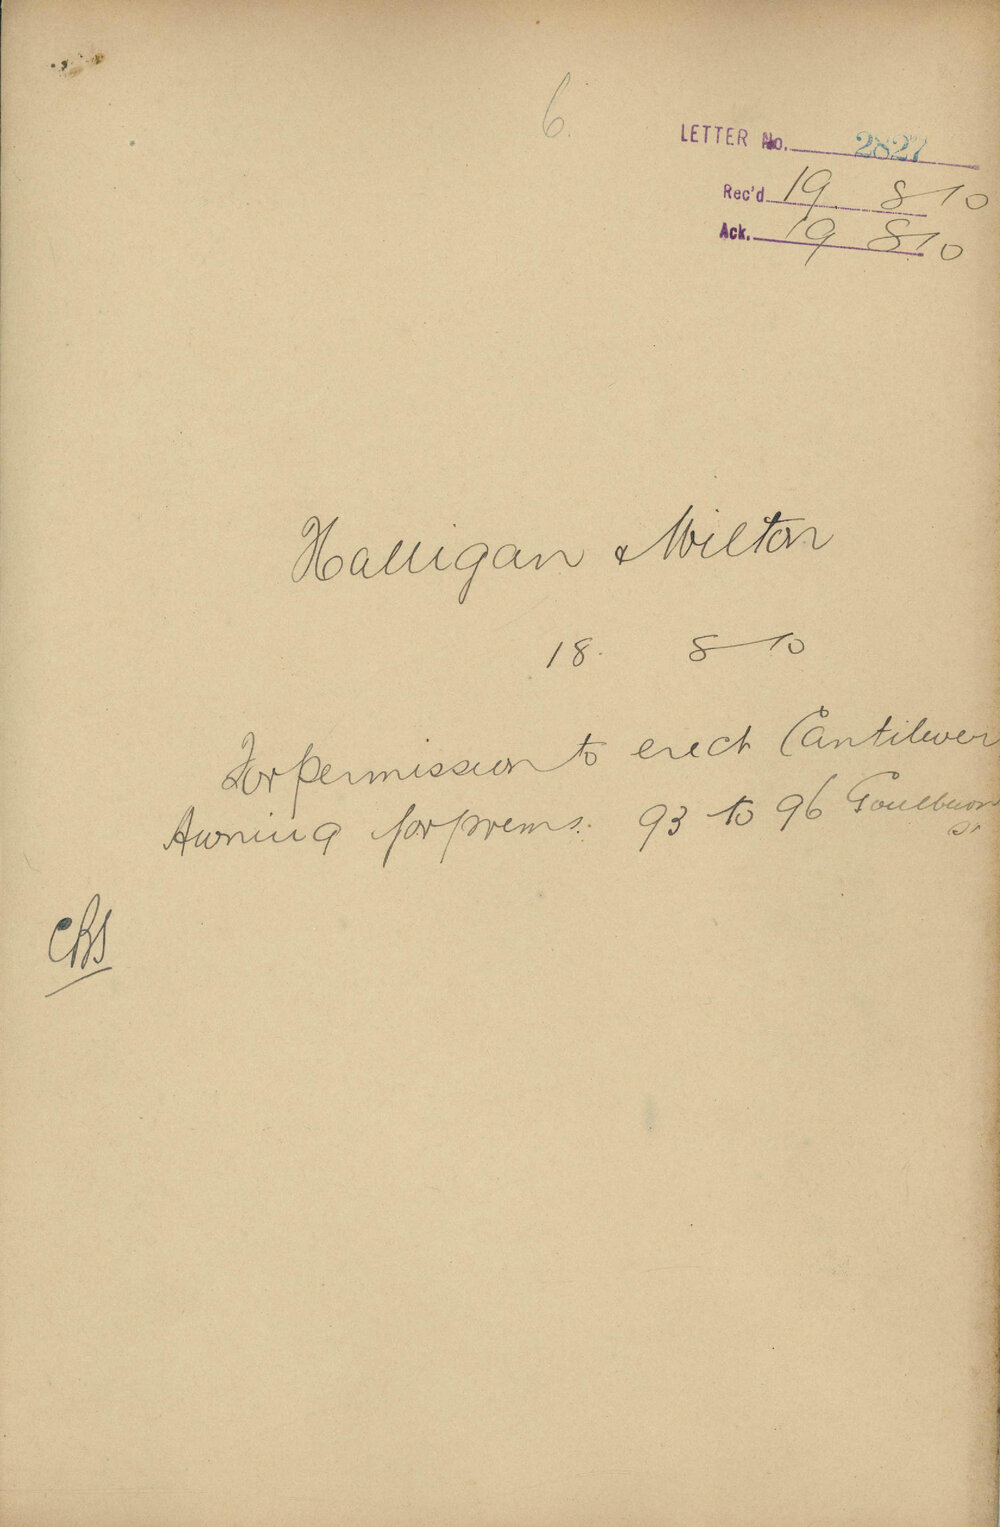 6.
LETTER No. 2827
Rec'd 19 8 10
Ack. 19 8 10
Halligan & Wilton
18. 8 10
For permission to erect Cantilever
Awning for prems. 93 to 96 Goulburn
St
CBS